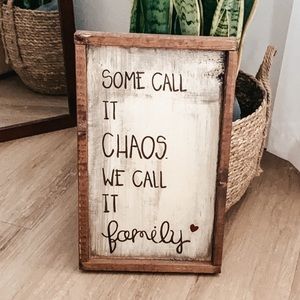 SOME CALL
IT
CHAOS.
WE CALL
IT
family